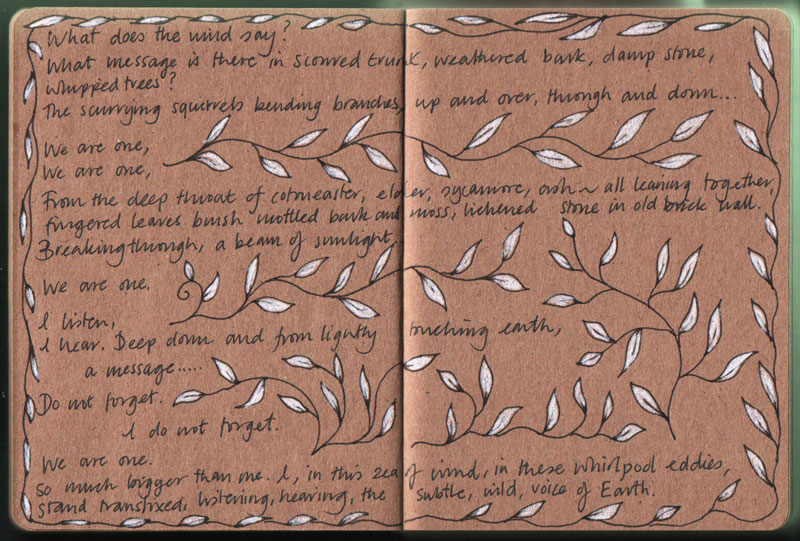 What does the wind say?
What message is there in scoured trunk, weathered bark, damp stone,
whipped trees?
The scurrying squirrels bending branches, up and over, through and down...
We are one,
We are one,
From the deep throat of cotoneaster, elder, sycamore, ash ~ all leaning together,
fingered leaves brush mottled bark and moss, lichened stone in old brick wall.
Breaking through, a beam of sunlight,
We are one.
I listen,
I hear. Deep down and from lightly touching earth,
a message.....
Do not forget.
I do not forget.
We are one.
So much bigger than me. I, in this sea of wind, in these whirlpool eddies,
stand transfixed, listening, hearing, the subtle, wild, voice of Earth.